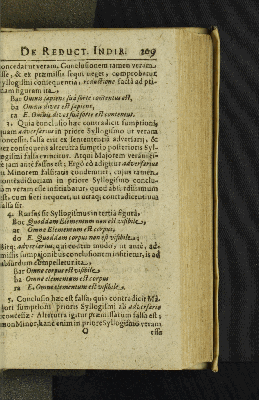 DE REDUCT. INDIR. 209
concedat ut veram. Conclusionem tamen veram
esse, & ex præmissis sequi neget, comprobatur
syllogismi consequentia, reductione facta ad pri-
mam figuram ita,
Bar Omnis sapiens sua sorte contentus est,
ba Omnis dives est sapiens,
ra E. Omnis dives sua sorte est contentus.
3. Quia conclusio hæc contradicit sumptioni,
quam adversarius in priore Syllogismo ut veram
concessit, falsa erit ex sententia adversarij, &
per consequens alterutra sumptio posterioris Syl-
logismi falsa
jam ante falsus est; Ergo eò adigitur adversarius
ut Minorem falsitatis condemnet, cujus tamen
contradictoriam in priore Syllogismo conclu-
4. Rursus sit Syllogismus in tertia figura,
Boc Quoddam Elementum non est visibile,
ar Omne Elementum est corpus,
do E. Quoddam corpus non est visibile,
adversarius, qui eodem modo, ut antè, ad-
absurdum compelletur ita,
Bar Omne corpus est visibile,
ba Omne elementum est corpus
ra E. Omne elementum est visibile.
5. Conclusio hæc est falsa, quia contradicit Ma-
jori sumptioni prioris Syllogismi ab adversario
concessæ: Alterutra igitur præmissarum falsa est;
non Minor, hanc enim in priore Syllogismo veram
O esse